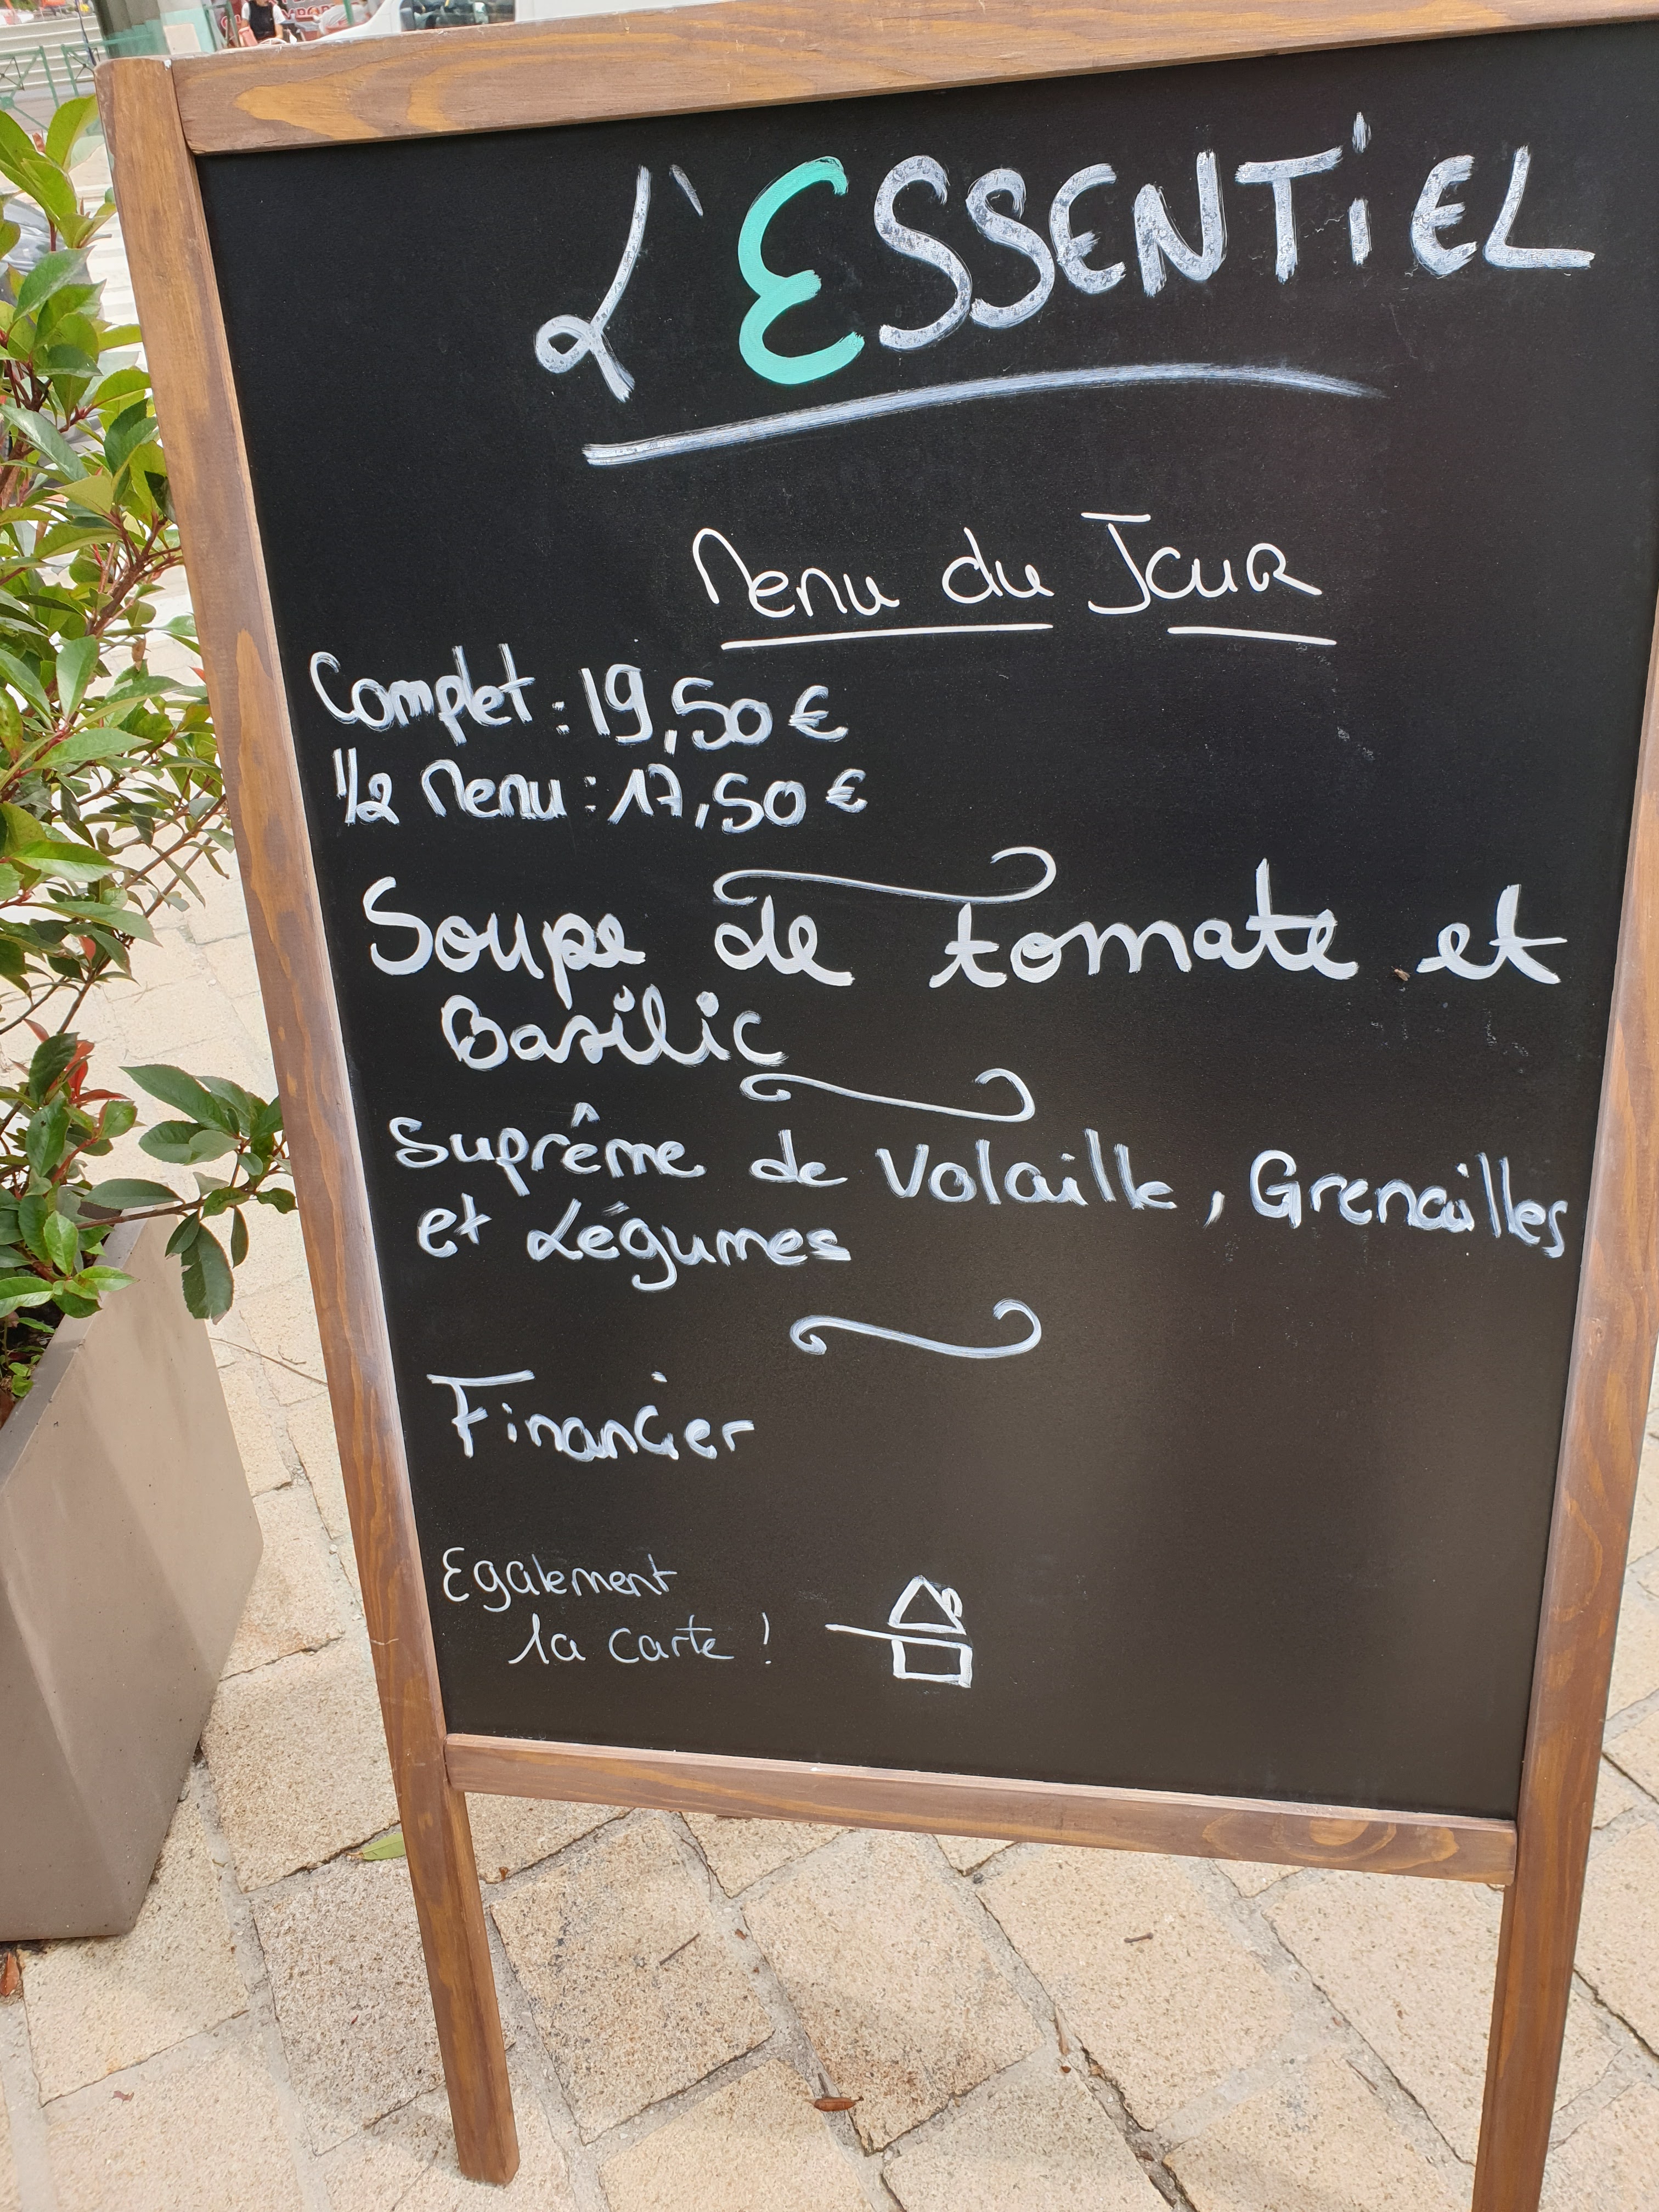 L'ESSENTiEL
Menu du Jour
Complet : 19,50 €
1/2 Menu : 17,50 €
Soupe de tomate et
Basilic
Suprême de Volaille, Grenailles
et Légumes
Financier
Egalement
la carte !